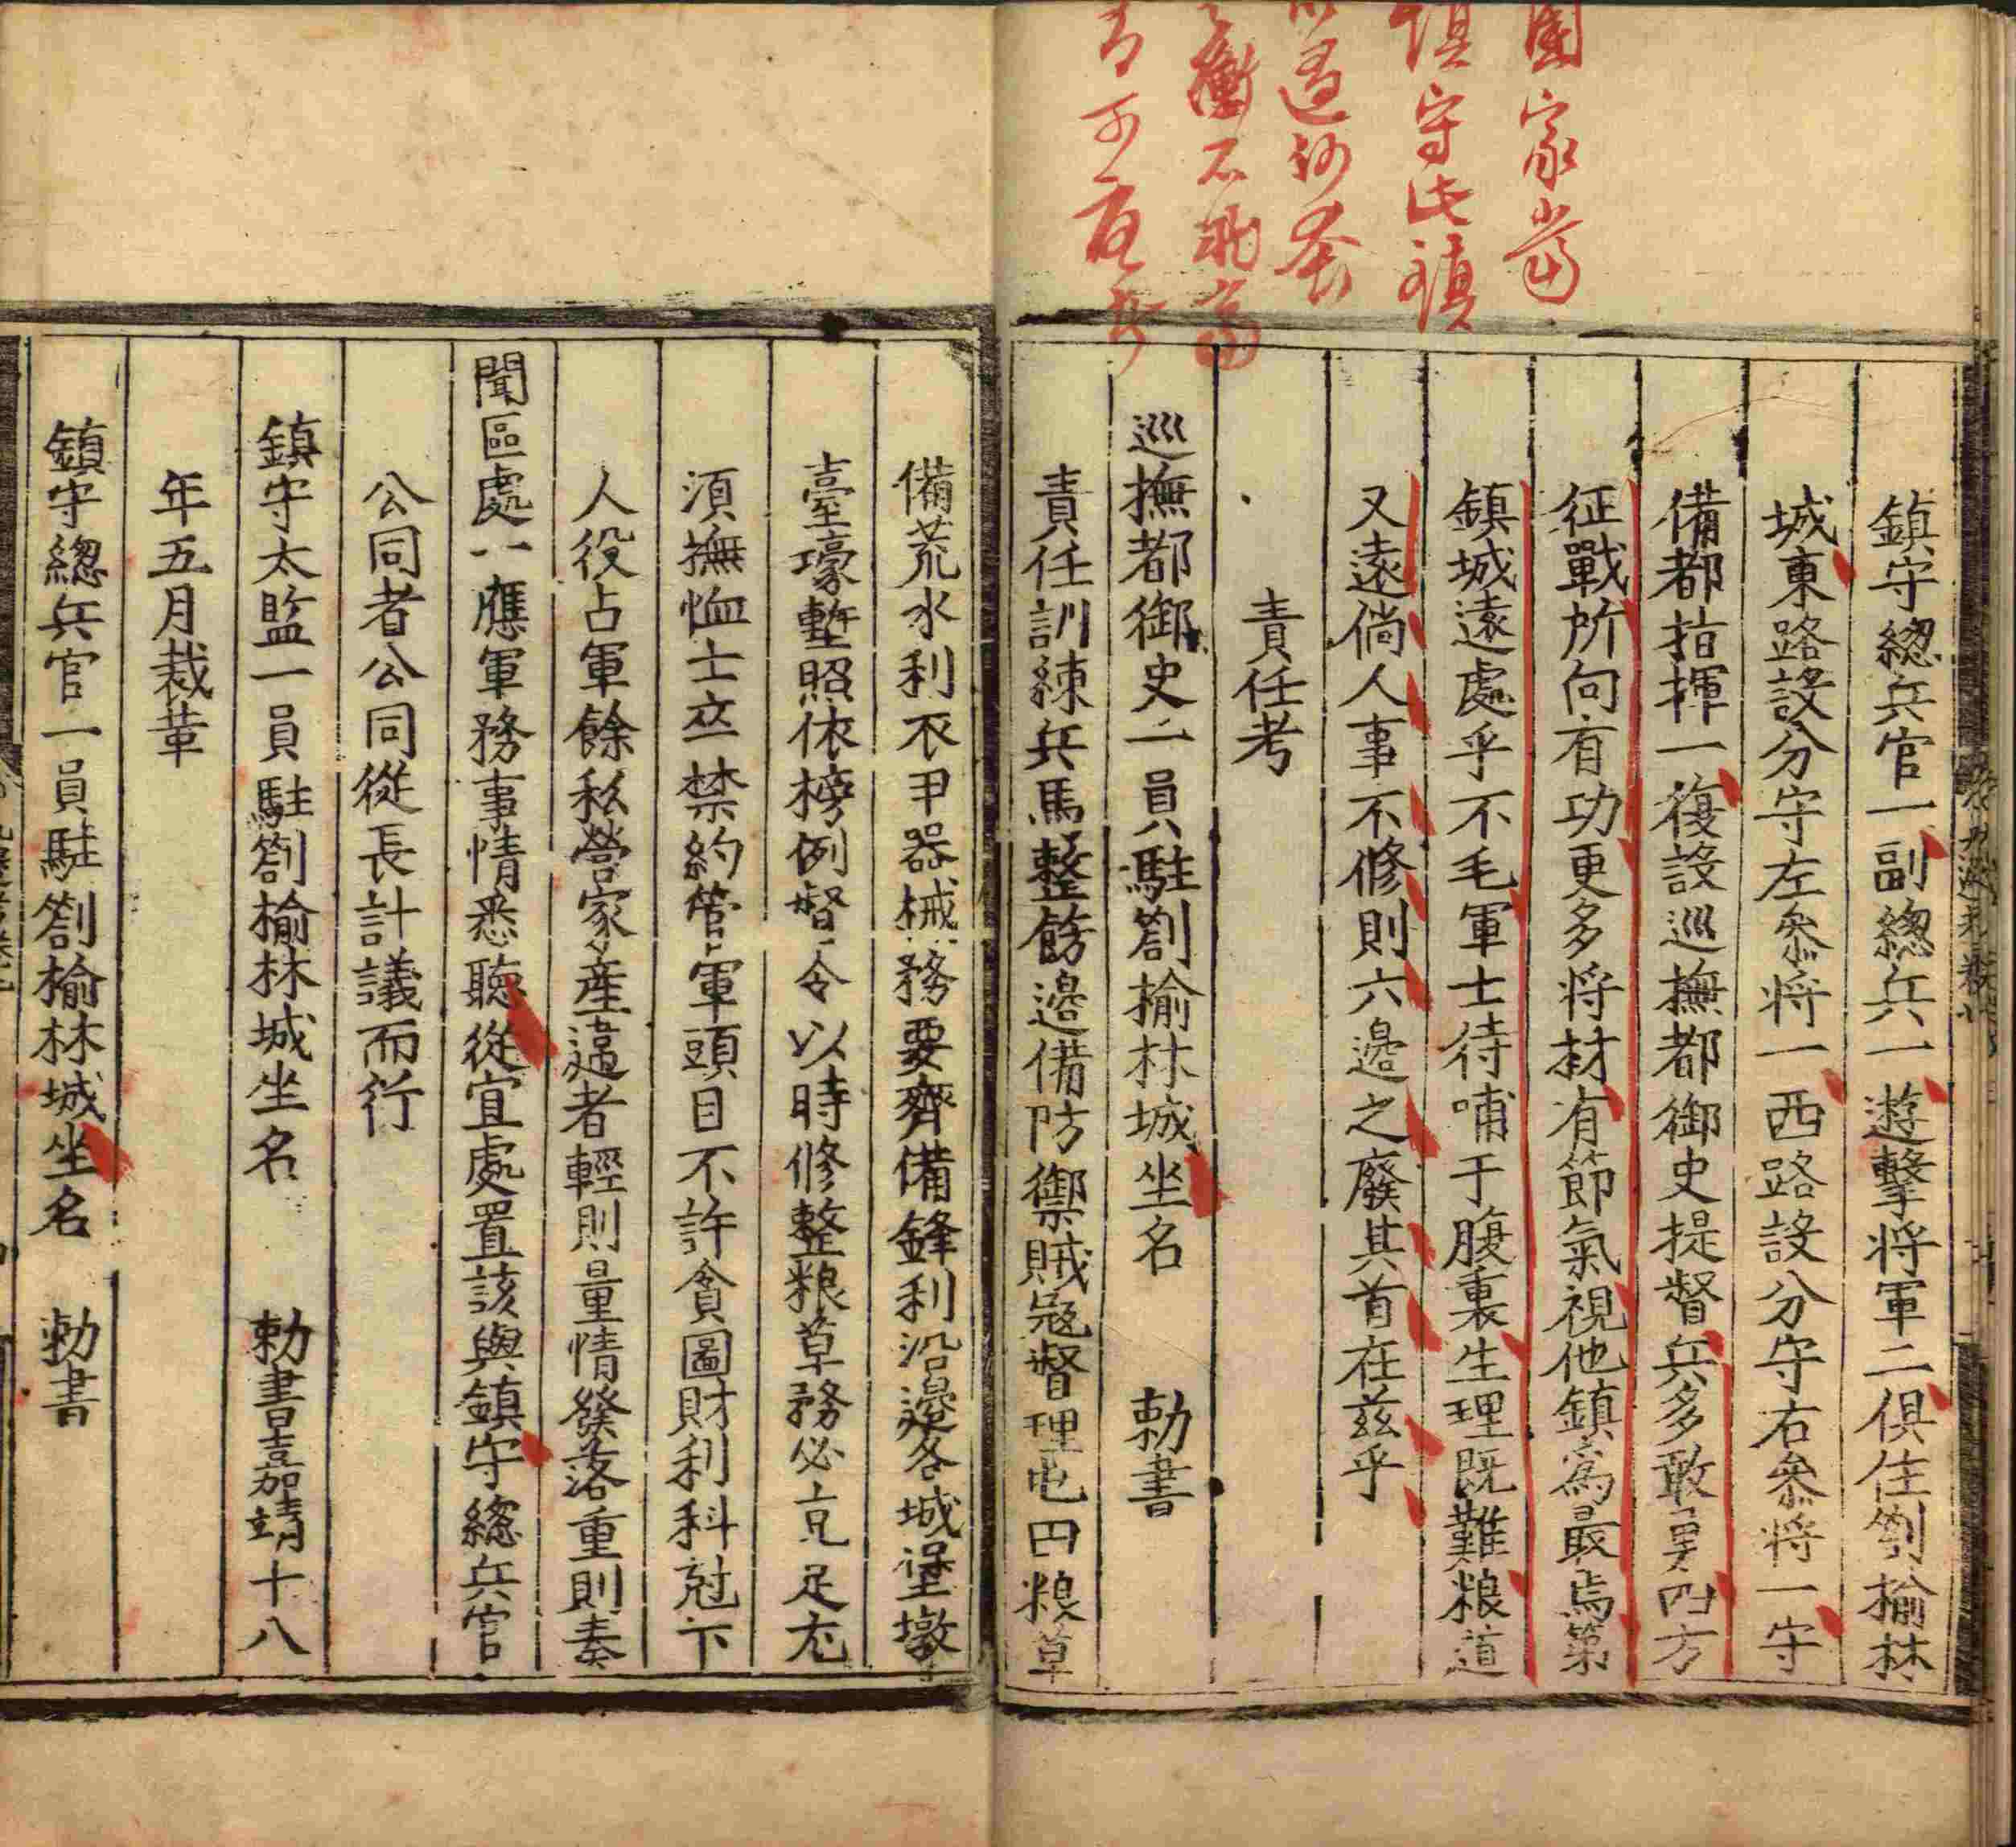 國家當
鎮守此鎮
過河套
衝不飛当
可
鎮守總兵官一副總兵一遊擊将軍二俱住劄榆林
城東路設分守左叅将一西路設分守右叅将一守
備都指揮一復設巡撫都御史提督兵多敢勇四方
征戰所向有功更多将材有節氣視他鎮爲最焉第
鎮城遠處乎不毛軍士待哺于腹裏生理既難粮道
又遠倘人事不修則六邊之廢其首在兹乎
責任考
巡撫都御史一員駐劄榆林城坐名 勅書
責任訓練兵馬整飭邊備防禦賊寇督理屯田粮草
備荒水利衣甲器械務要齊備鋒利沿邊各城堡墩
臺壕塹照依榜例督令以時修整粮草務必克足
湏撫恤士卒禁約管軍頭目不許貪圖財利科尅下
人役占軍餘私營家産違者輕則量情發落重則奏
聞區處一應軍務事情悉聽從宜處置該與鎮守總兵官
公同者公同從長計議而行
鎮守太監一員駐劄榆林城坐名 勅書嘉靖十八
年五月裁革
鎮守總兵官一員駐劄榆林城坐名 勅書